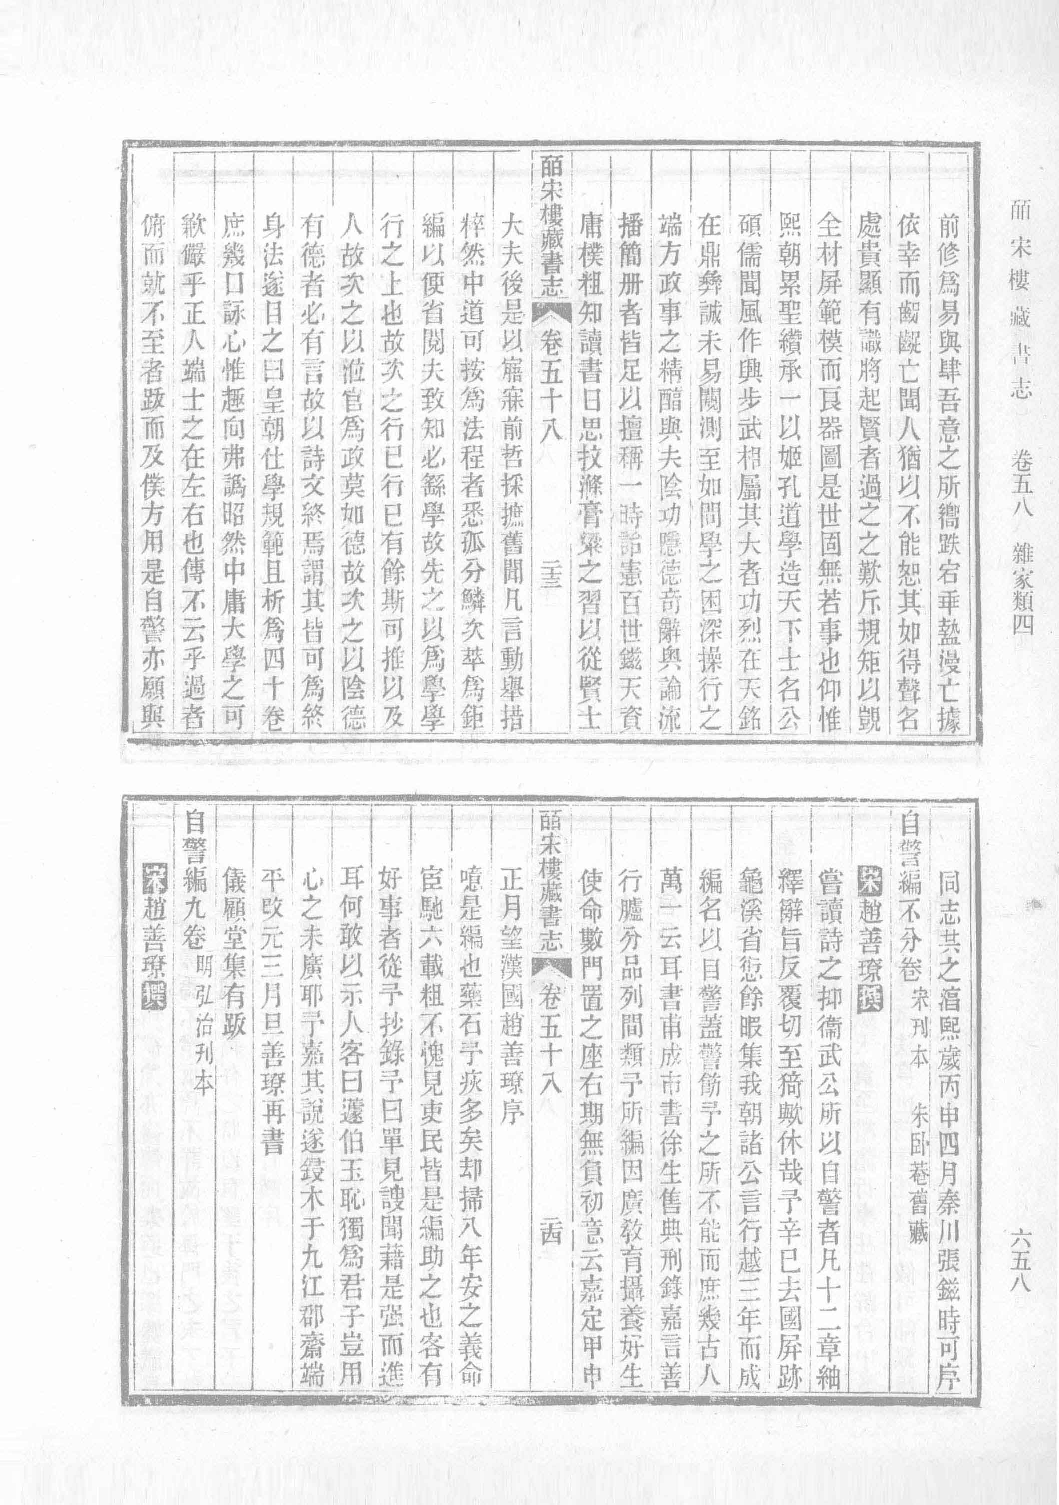 皕宋樓藏書志　卷五八　雜家類四
六五八
前修爲易與肆吾意之所嚮跌宕垂墊漫亡據
依幸而齪齪亡聞人猶以不能恕其如得聲名
處貴顯有識將起賢者過之之歎斥規矩以覬
全材屏範模而良器圖是世固無若事也仰惟
熙朝累聖纘承一以姬孔道學造天下士名公
碩儒聞風作興步武相屬其大者功烈在天銘
在鼎彝誠未易闚測至如問學之困深操行之
端方政事之精醕與夫陰功隱德奇辭奧論流
播簡册者皆足以擅稱一時詒憲百世鎡天資
庸樸粗知讀書日思抆滌膏粱之習以從賢士
皕宋樓藏書志　卷五十八　二十三
大夫後是以寤寐前哲採摭舊聞凡言動舉措
粹然中道可按爲法程者悉孤分鱗次萃爲鉅
編以便省閱夫致知必繇學故先之以爲學學
行之上也故次之行已行已有餘斯可推以及
人故次之以涖官爲政莫如德故次之以陰德
有德者必有言故以詩文終焉謂其皆可爲終
身法遂目之曰皇朝仕學規範且析爲四十卷
庶幾口誦心惟趣向弗譌昭然中庸大學之可
歙儼乎正人端士之在左右也傳不云乎過者
俯而就不至者跂而及僕方用是自警亦願與
同志共之淳熙歲丙申四月秦川張鎡時可序
自警編不分卷　宋刊本　朱卧菴舊藏
宋趙善璙撰
嘗讀詩之抑衞武公所以自警者凡十二章紬
繹辭旨反覆切至猗歟休哉予辛巳去國屏跡
龜溪省愆餘暇集我朝諸公言行越三年而成
編名以自警蓋警筋予之所不能而庶幾古人
萬一云耳書甫成市書徐生售典刑錄嘉言善
行臚分品列間類予所編因廣敎育攝養好生
使命數門置之座右期無負初意云嘉定甲申
皕宋樓藏書志　卷五十八　二十四
正月望漢國趙善璙序
噫是編也藥石予疾多矣却掃八年安之義命
宦馳六載粗不愧見吏民皆是編助之也客有
好事者從予抄錄予曰單見謏聞藉是强而進
耳何敢以示人客曰蘧伯玉恥獨爲君子豈用
心之未廣耶予嘉其說遂鋟木于九江郡齋端
平改元三月旦善璙再書
儀顧堂集有跋
自警編九卷　明弘治刊本
宋趙善璙撰